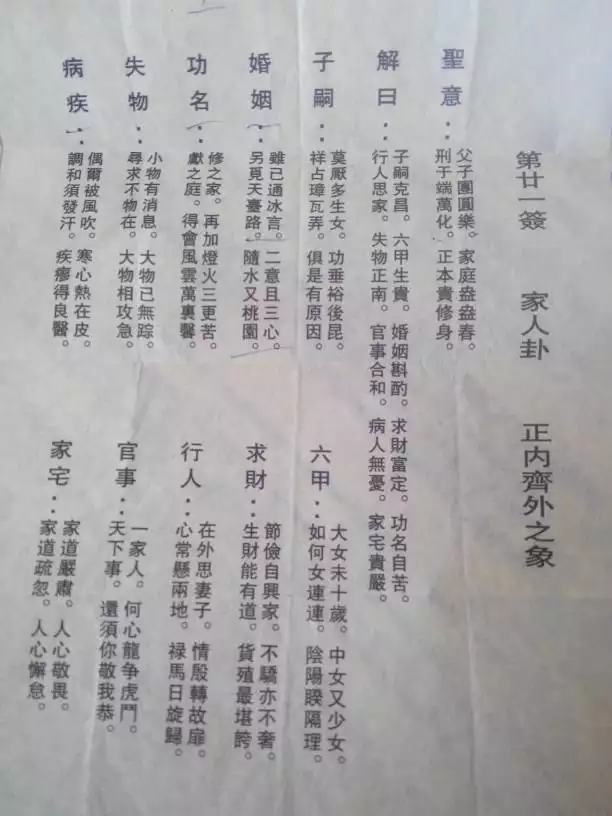 第廿一簽 家人卦 正內齊外之象
聖意：父子團圓樂。家庭盎盎春。
刑于端萬化。正本貴修身。
解曰：子嗣克昌。六甲生貴。婚姻斟酌。求財富定。功名自苦。
行人思家。失物正南。官事合和。病人無憂。家宅貴嚴。
子嗣：莫厭多生女。功垂裕後昆。
祥占璋瓦弄。俱是有原因。
六甲：大女未十歲。中女又少女。
如何女連連。陰陽睽隔理。
婚姻：雖已通冰言。二意且三心。
另覓天臺路。隨水又桃園。
求財：節儉自興家。不驕亦不奢。
生財能有道。貨殖最堪誇。
功名：修之家。再加燈火三更苦。
獻之庭。得會風雲萬裏馨。
行人：在外思妻子。情殷轉故扉。
心常懸兩地。禄馬日旋歸。
失物：小物有消息。大物已無踪。
尋求不物在。大物相攻急。
官事：一家人。何心龍争虎鬥。
天下事。還須你敬我恭。
病疾：偶爾被風吹。寒心熱在皮。
調和須發汗。疾瘳得良醫。
家宅：家道嚴肅。人心敬畏。
家道疏忽。人心懈怠。